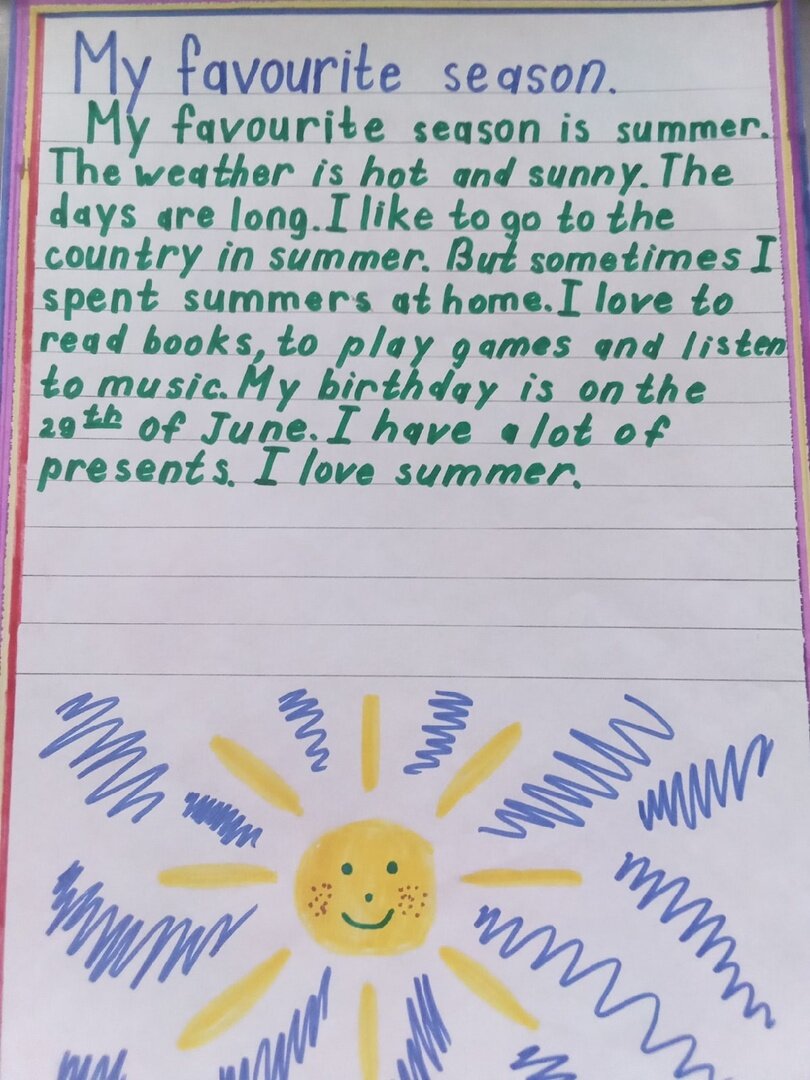 My favourite season.
My favourite season is summer.
The weather is hot and sunny. The
days are long. I like to go to the
country in summer. But sometimes I
spent summers at home. I love to
read books, to play games and listen
to music. My birthday is on the
29th of June. I have a lot of
presents. I love summer.